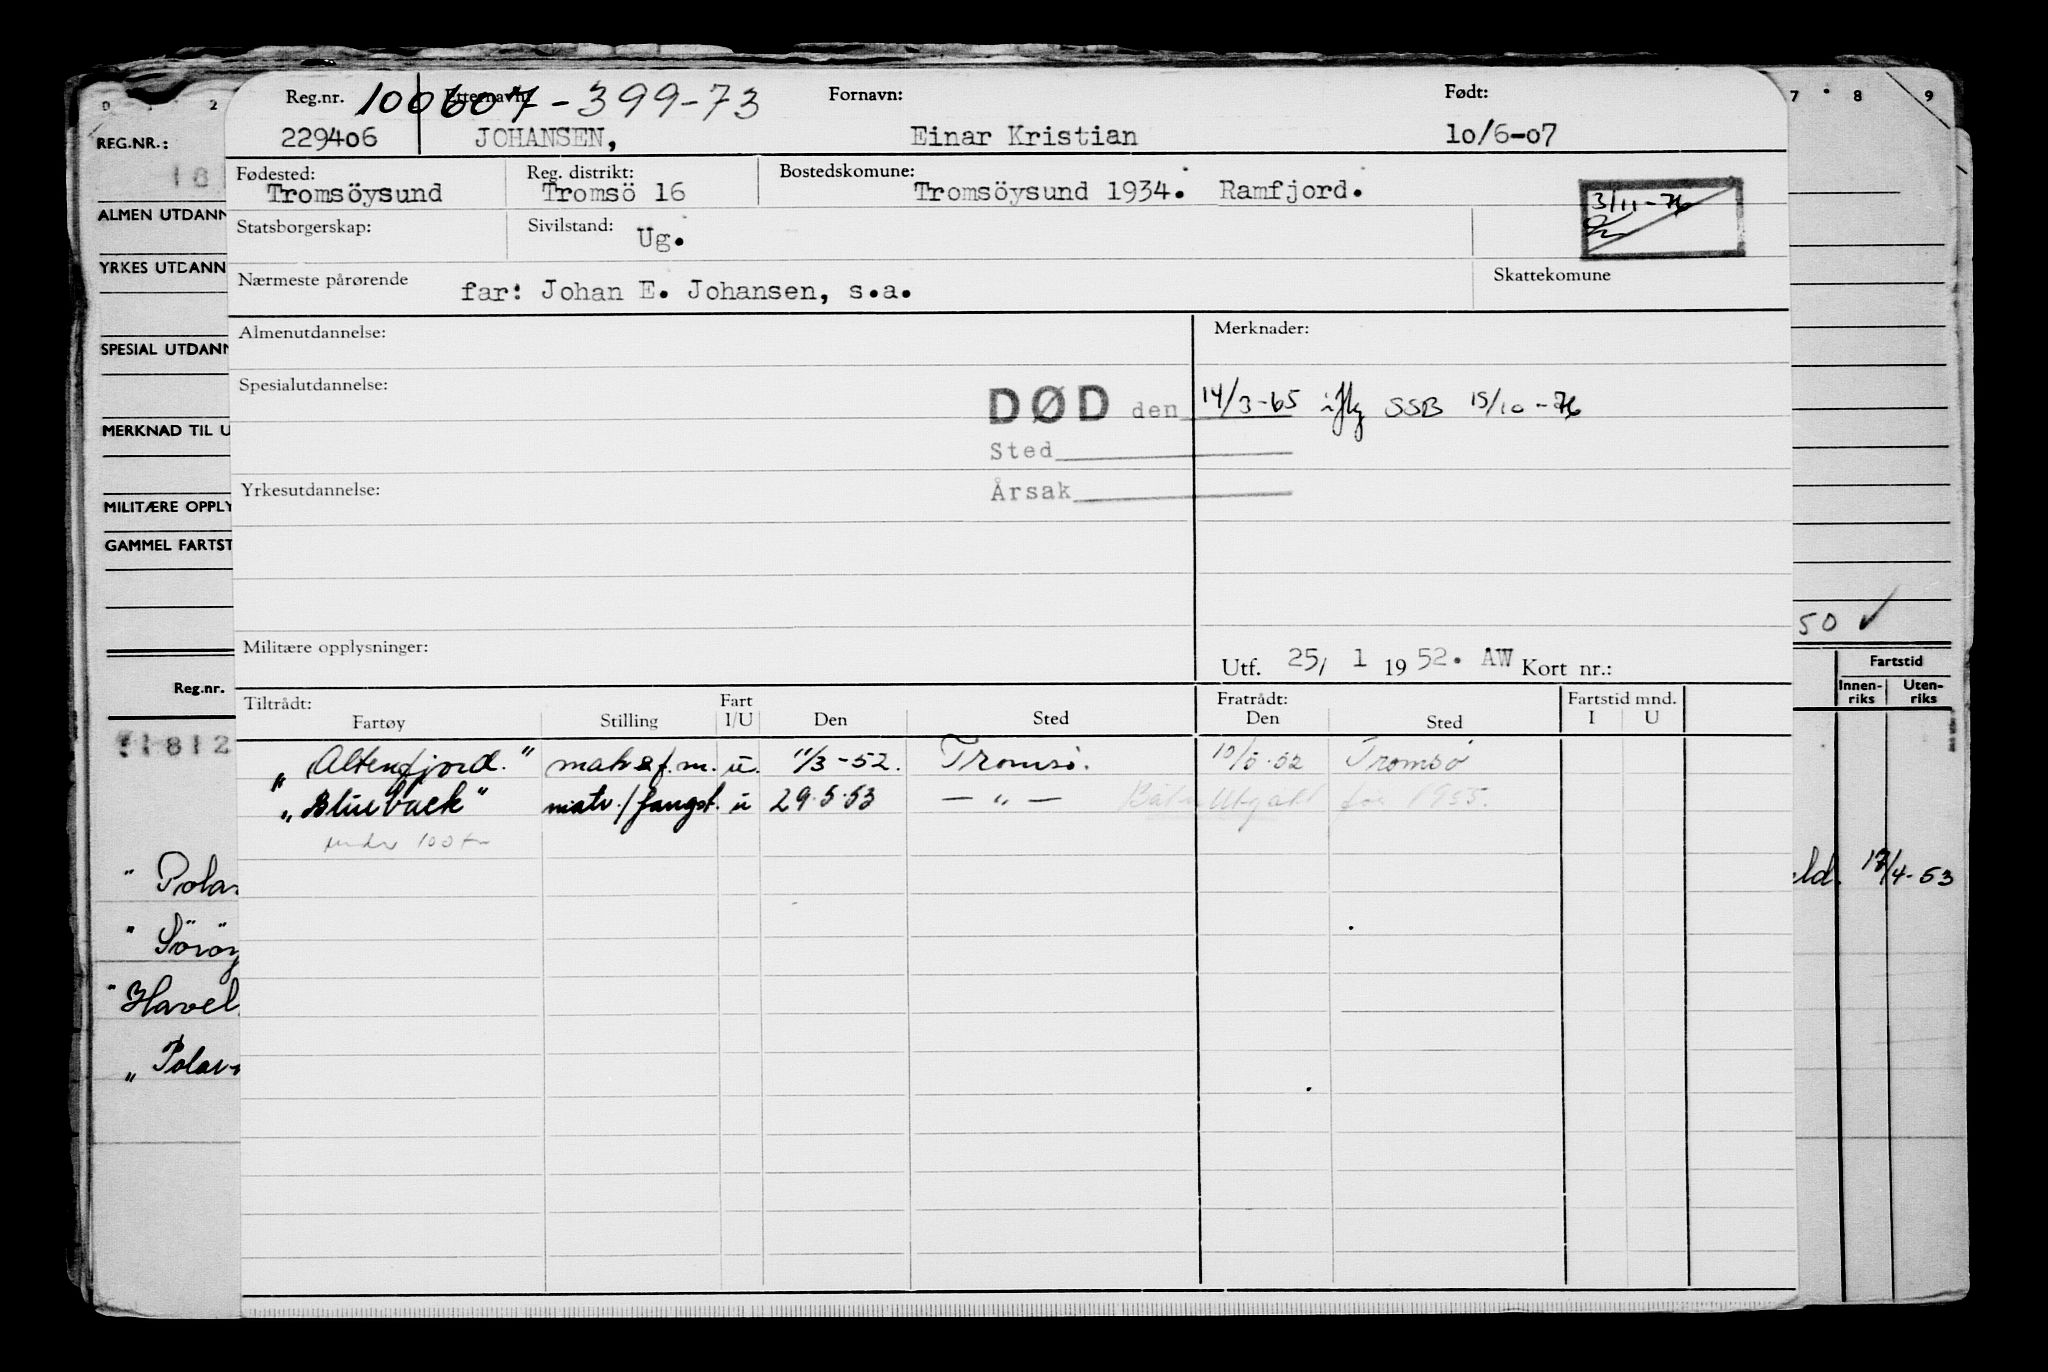 0 1 2 7 8 9
REG.NR.:
ALMEN UTDANN
YRKES UTDANN
SPESIAL UTDANN
MERKNAD TIL U
MILITÆRE OPPLY
GAMMEL FARTST
50 ✓
Reg.nr.
Fartstid
Innen-riks Uten-riks
1812
" Polar
" Söröy
" Havel
„ Polar-
eld. 17/4-53
100607-399-73
Reg.nr. Etternavn: Fornavn: Født:
229406 JOHANSEN, Einar Kristian 10/6-07
Fødested: Reg. distrikt: Bostedskomune:
Tromsöysund Tromsö 16 Tromsöysund 1934. Ramfjord.
3/11-76
Statsborgerskap: Sivilstand: Ug.
Nærmeste pårørende far: Johan E. Johansen, s.a. Skattekomune
Almenutdannelse: Merknader:
Spesialutdannelse:
DØD den 14/3-65 iflg SSB 15/10-76
Sted
Yrkesutdannelse: Årsak
Militære opplysninger:
Utf. 25/ 1 1952. AW Kort nr.:
Tiltrådt: Fart Fratrådt: Fartstid mnd.
Fartøy Stilling I/U Den Sted Den Sted I U
„Altenfjord." u. 11/3-52. Tromsø. Tromsø
„Blueback" matr./fangst. u 29.5.53 — „ — før 1955.
under 100 t